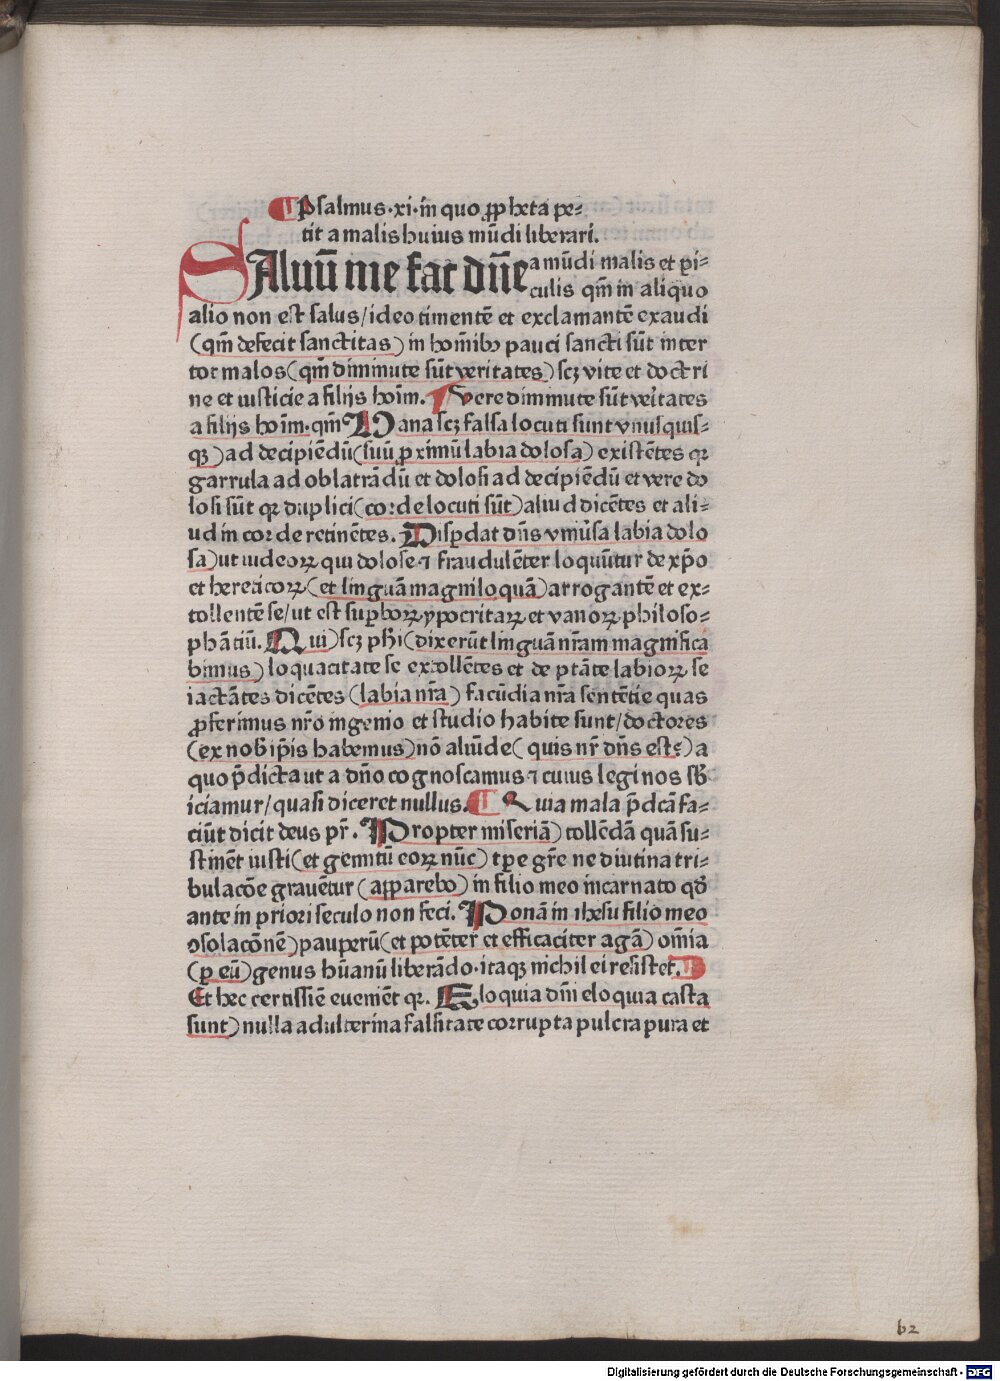 ¶ Psalmus·xi·in̄ quo ꝓpheta pe⸗
tit a malis huius mūdi liberari.
SAluū me fac dn̄e a mūdi malis et pi⸗
culis qm̄ in aliquo
alio non est salus/ideo timentē et exclamantē exaudi
(qm̄ defecit sanctitas) in hom̄ibꝰ pauci sancti sūt inter
tot malos(qm̄ diminute sūt veritates) scꝫ vite et doctri
ne et iusticie a filijs hoīm. ¶ Vere diminute sūt veritates
a filijs hoīm·qm̄ Vana scꝫ falsa locuti sunt vnusquis⸗
qꝫ) ad decipiēdū(suū ꝓximū labia dolosa) existētes qꝛ
garrula ad oblatrādū et dolosi ad decipiēdū et vere do
losi sūt qꝛ duplici(corde locuti sūt)aliud dicētes et ali⸗
ud in corde retinētes. Disꝑdat dn̄s vniūsa labia dolo
sa)ut iudeoꝝ qui dolose ⁊ fraudulēter loquūtur de xp̄o
et hereticoꝝ(et linguā magniloquā)arrogantē et ex⸗
tollentē se/ut est suꝑboꝝ ypocritaꝝ et vanoꝝ philoso⸗
phātiū. Qui)scꝫ phi(dixerūt linguā nr̄am magnifica
bimus) loquacitate se extollētes et de ptāte labioꝝ se
iactātes dicētes (labia nr̄a) facūdia nr̄a sentētie quas
ꝓferimus nr̄o ingenio et studio habite sunt/doctores
(ex nob̄ ip̄is habemus)nō aliūde( quis nr̄ dn̄s est?) a
quo p̄dicta ut a dn̄o cognoscamus ⁊ cuius legi nos sb̄
iciamur/quasi diceret nullus. ¶ Quia mala p̄dcā fa⸗
ciūt dicit deus pr̄. Propter miseriā) tollēdā quā su⸗
stinēt iusti(et gemitū eoꝝ nūc) tꝑe gr̄e ne diutina tri⸗
bulacōe grauētur (apparebo) in filio meo incarnato qd̄
ante in priori seculo non feci. Ponā in ihesu filio meo
ꝯsolacōnē)pauperū(et potēter et efficaciter agā) om̄ia
(ꝑ eū)genus hūanū liberādo·itaqꝫ nichil ei resistet.
Et hec certissiē eueniēt qꝛ. Eloquia dn̄i eloquia casta
sunt) nulla adulterina falsitate corrupta pulcra pura et
b2
Digitalisierung gefördert durch die Deutsche Forschungsgemeinschaft - DFG